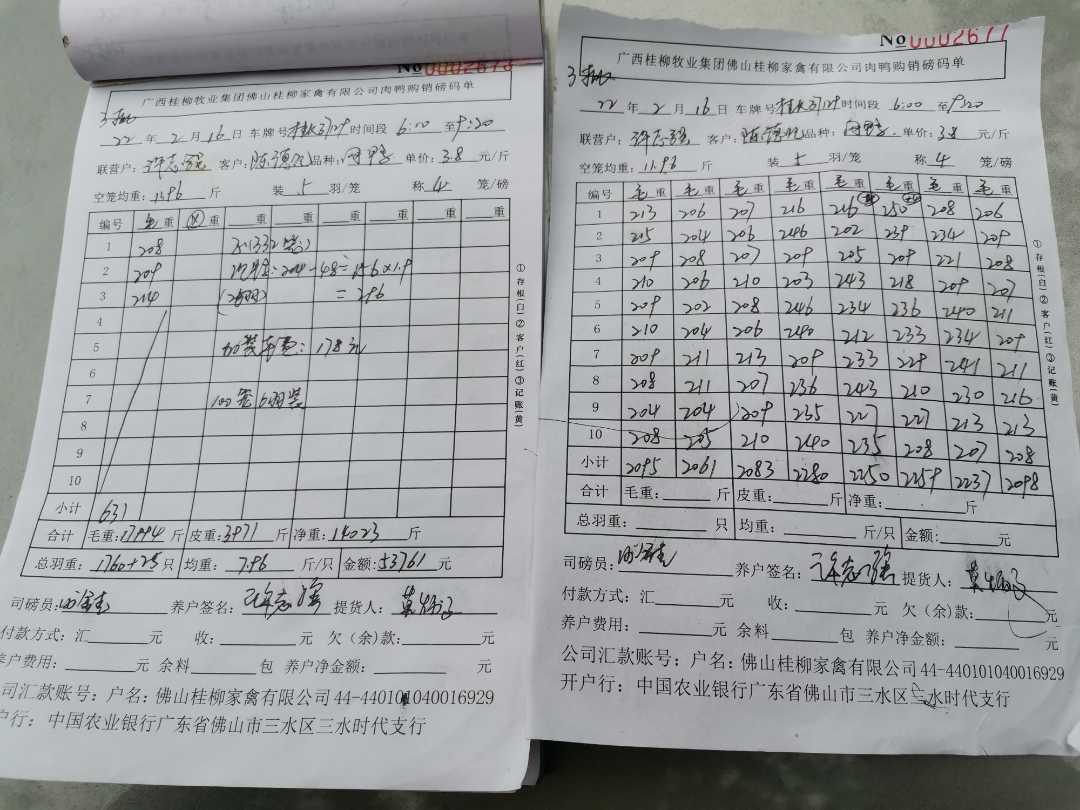 No 0002678
广西桂柳牧业集团佛山桂柳家禽有限公司肉鸭购销磅码单
22年2月16日 车牌号 时间段 6:00 至9:20
联营户:许志强 客户:陈德 品种: 单价:3.8 元/斤
空笼均重:11.96 斤 装 5 羽/笼 称 4 笼/磅
编号 毛重 重 重 重 重 重 重 重
1 208 (332笼)
2 209 204-48=156×1.9
3 214 =296
4
5 加装车费:178元
6
7 100笼6羽装
8
9
10
小计 631
合计 毛重:17994斤 皮重:3971斤 净重:14023斤
总羽重:1760+25只 均重:7.96斤/只 金额:53761元
司磅员: 养户签名:许志强 提货人:
付款方式:汇 元 收: 元 欠(余)款: 元
养户费用: 元 余料 包 养户净金额: 元
司汇款账号:户名:佛山桂柳家禽有限公司44-440101040016929
户行:中国农业银行广东省佛山市三水区三水时代支行
①存根(白)②客户(红)③记账(黄)
No 0002677
广西桂柳牧业集团佛山桂柳家禽有限公司肉鸭购销磅码单
22年2月16日 车牌号 时间段 6:00 至9:20
联营户:许志强 客户:陈德 品种: 单价:3.8 元/斤
空笼均重:11.96 斤 装 5 羽/笼 称 4 笼/磅
编号 毛重 毛重 毛重 毛重 毛重 毛重 毛重 毛重
1 213 206 207 216 246 250 208 206
2 215 204 206 246 202 239 234 209
3 209 208 207 209 205 209 221 208
4 210 206 210 203 243 218 209 207
5 209 202 208 246 234 236 240 211
6 210 204 206 240 212 233 234 209
7 209 211 213 209 233 229 241 211
8 208 211 207 236 243 210 230 216
9 204 204 209 235 227 227 213 213
10 208 205 210 240 235 208 207 208
小计 2095 2061 2083 2280 2250 2259 2237 2098
合计 毛重: 斤 皮重: 斤 净重: 斤
总羽重: 只 均重: 斤/只 金额: 元
司磅员: 养户签名:许志强 提货人:
付款方式:汇 元 收: 元 欠(余)款: 元
养户费用: 元 余料 包 养户净金额: 元
公司汇款账号:户名:佛山桂柳家禽有限公司44-440101040016929
开户行:中国农业银行广东省佛山市三水区三水时代支行
①存根(白)②客户(红)③记账(黄)